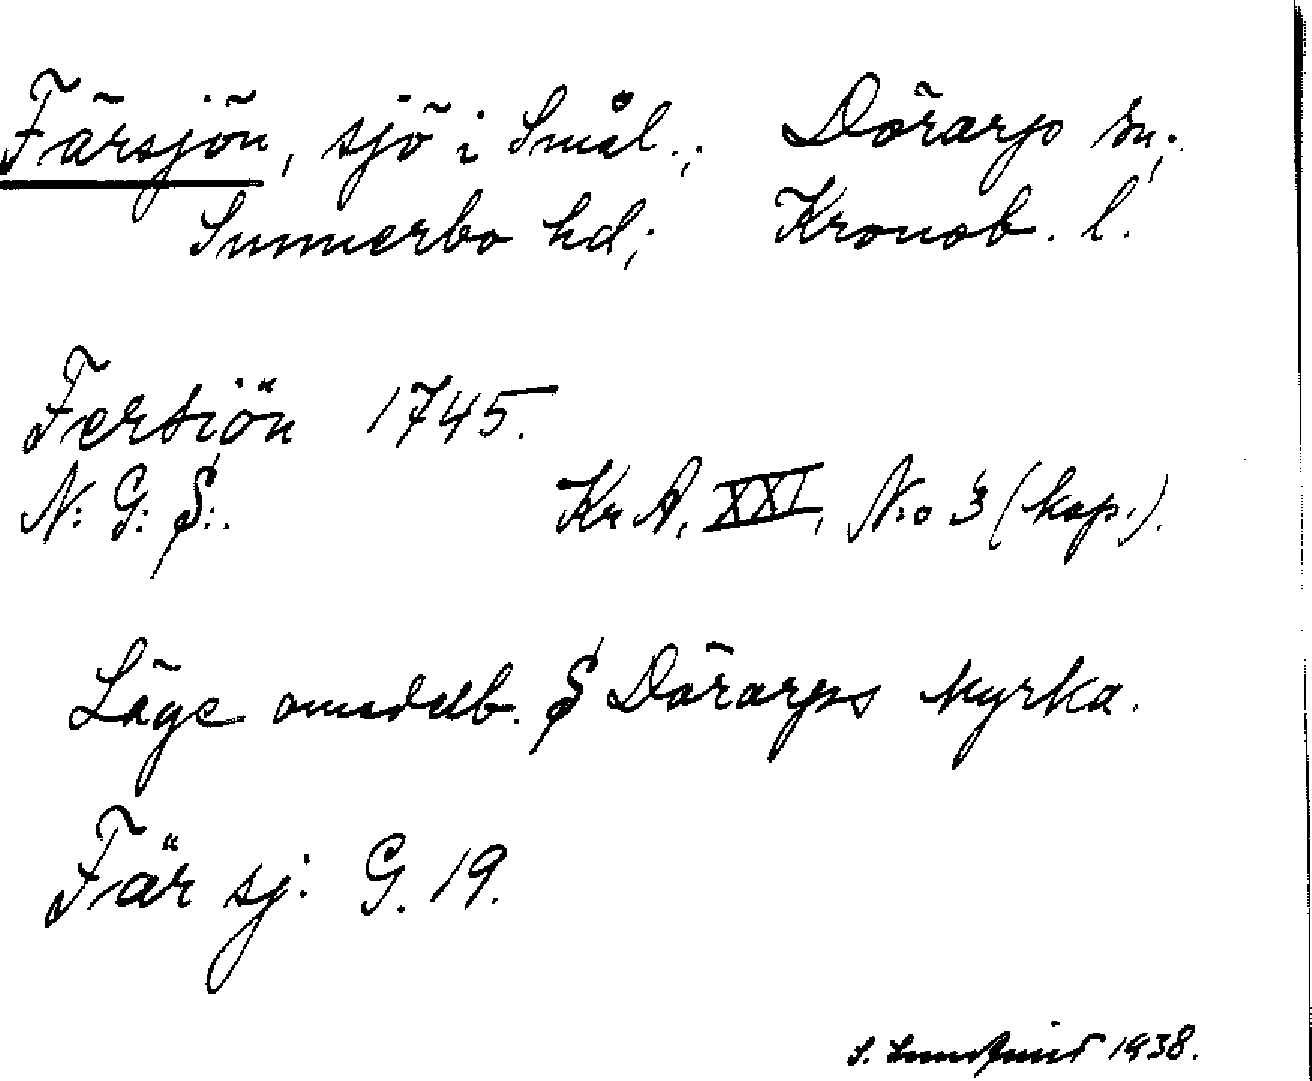 Färsjön, sjö i Smål.; Dörarp sn;
Sunnerbo hd; Kronob. l.
Fersiön 1745.
N: G: S:. Kr A. XXI, N:o 3 (kop.).
Läge omedelb. S Dörarps kyrka.
Fär sj: G. 19.
S. 1938.